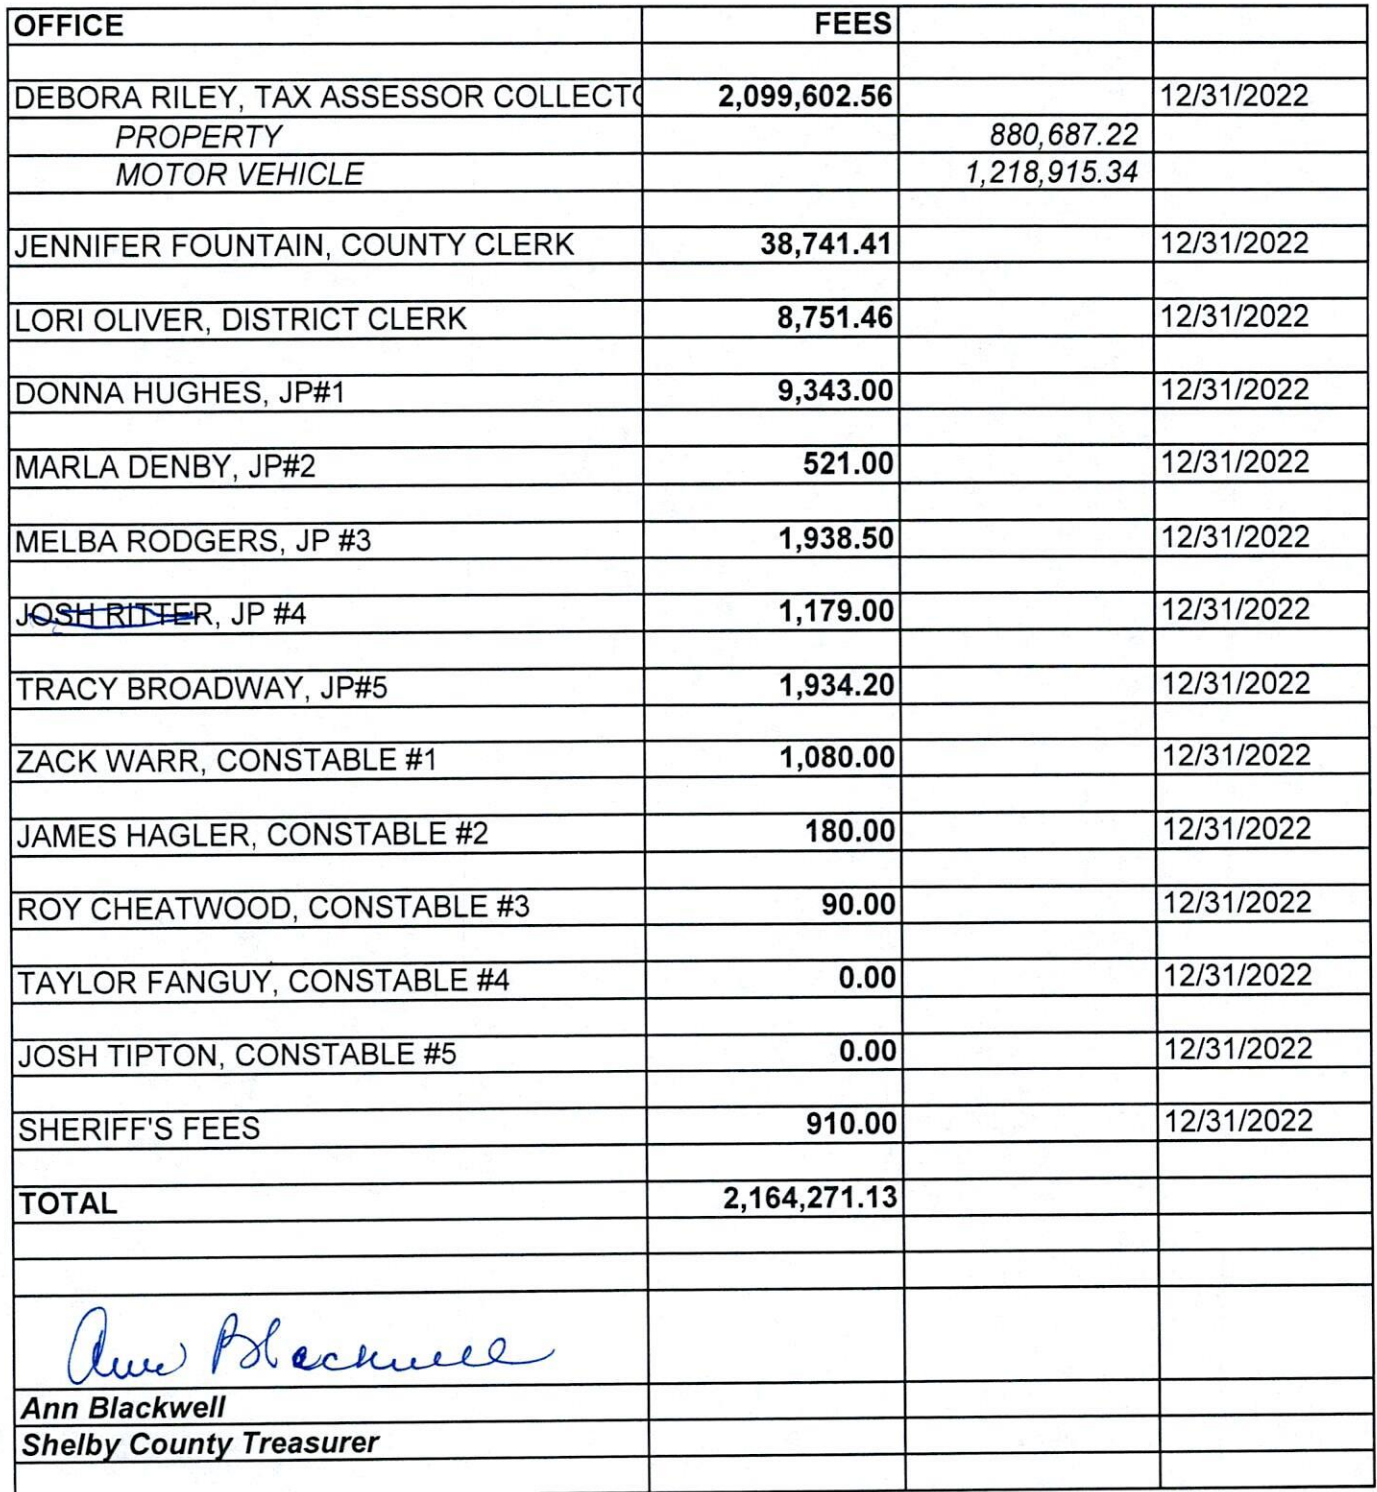 OFFICE FEES
DEBORA RILEY, TAX ASSESSOR COLLECTO 2,099,602.56 12/31/2022
PROPERTY 880,687.22
MOTOR VEHICLE 1,218,915.34
JENNIFER FOUNTAIN, COUNTY CLERK 38,741.41 12/31/2022
LORI OLIVER, DISTRICT CLERK 8,751.46 12/31/2022
DONNA HUGHES, JP#1 9,343.00 12/31/2022
MARLA DENBY, JP#2 521.00 12/31/2022
MELBA RODGERS, JP #3 1,938.50 12/31/2022
JOSH RITTER, JP #4 1,179.00 12/31/2022
TRACY BROADWAY, JP#5 1,934.20 12/31/2022
ZACK WARR, CONSTABLE #1 1,080.00 12/31/2022
JAMES HAGLER, CONSTABLE #2 180.00 12/31/2022
ROY CHEATWOOD, CONSTABLE #3 90.00 12/31/2022
TAYLOR FANGUY, CONSTABLE #4 0.00 12/31/2022
JOSH TIPTON, CONSTABLE #5 0.00 12/31/2022
SHERIFF'S FEES 910.00 12/31/2022
TOTAL 2,164,271.13
Ann Blackwell
Ann Blackwell
Shelby County Treasurer